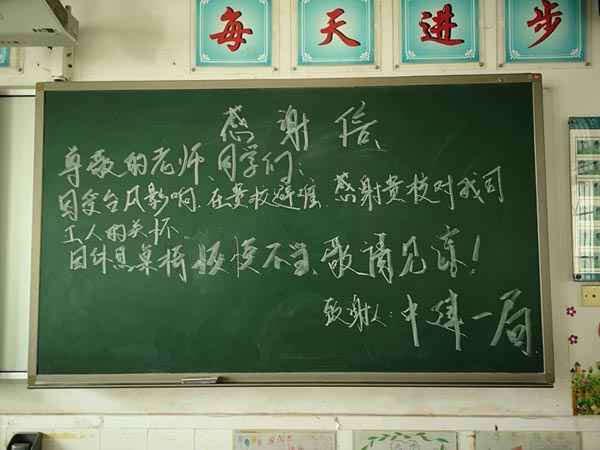 每天进步
感谢信
尊敬的老师、同学们:
因受台风影响,在贵校避难,感谢贵校对我司
工人的关怀。
因休息桌椅恢复不当,敬请见谅!
致谢人:中建一局